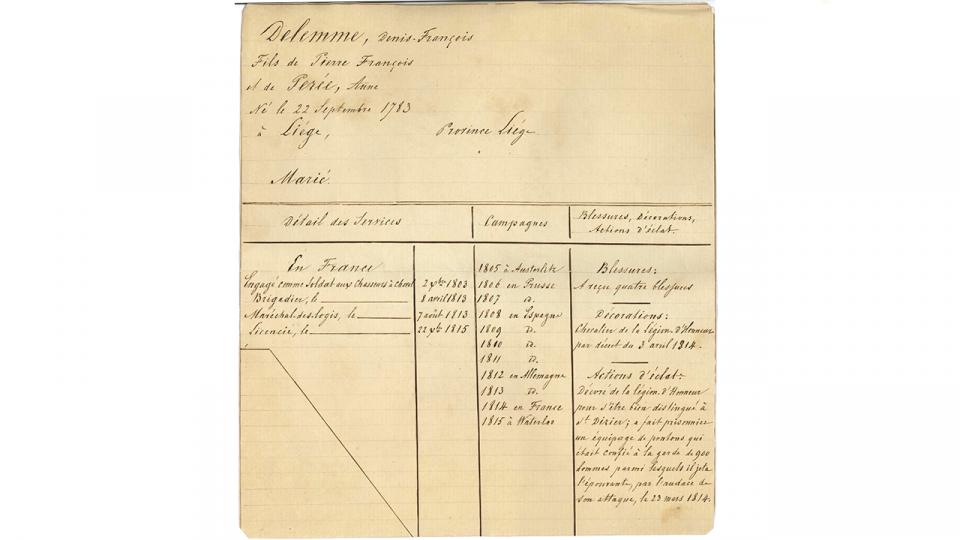 Delemme, Denis-François
Fils de Pierre François
et de Perée, Anne
Né le 22 Septembre 1783
à Liége, Province Liége
Marié.
Détail des Services
En France
Engagé comme Soldat aux Chasseurs à cheval 2 xbre 1803
Brigadier, le 8 avril 1813
Maréchal-des-logis, le 7 août 1813
Licencié, le 22 xbre 1815
Campagnes
1805 à Austerlitz
1806 en Prusse
1807 id.
1808 en Espagne
1809 id.
1810 id.
1811 id.
1812 en Allemagne
1813 id.
1814 en France
1815 à Waterloo
Blessures, Décorations,
Actions d'éclat.
Blessures:
A reçu quatre blessures
Décorations:
Chevalier de la légion d'Honneur
par décret du 3 avril 1814.
Actions d'éclat:
Décoré de la légion d'Honneur
pour s'être bien distingué à
St Dizier; a fait prisonnier
un équipage de pontons qui
était confié à la garde de 900
hommes parmi lesquels il jeta
l'épouvante, par l'audace de
son attaque, le 23 mars 1814.